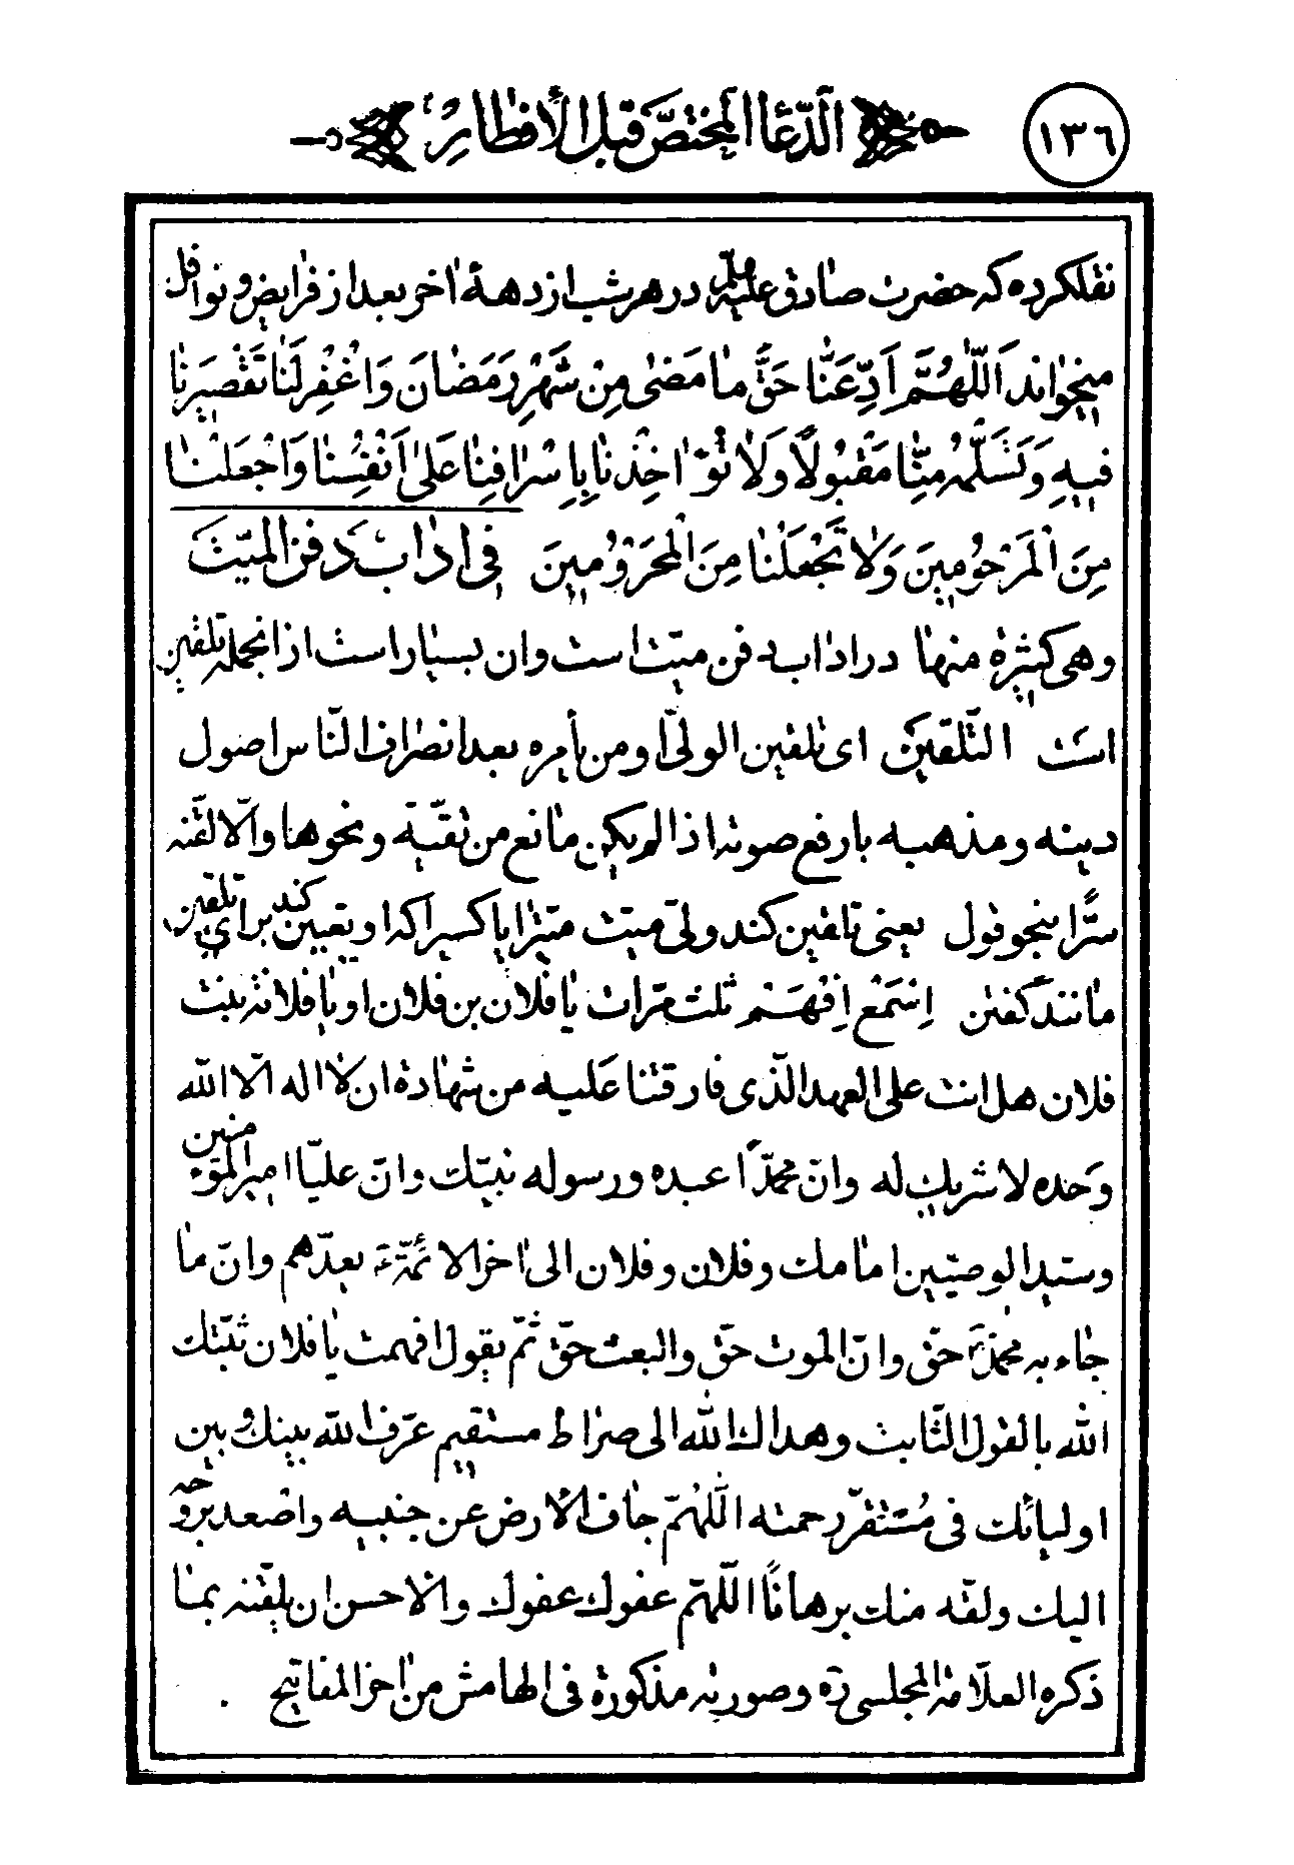 الدّعا المختصّ قبل الأفطارِ
١٣٦
نقلکرده که حضرت صادق علیه السلم در هر شب از دههٔ اخر بعد از فرایض و نوافل
میخواند اَللّهُمَّ اَدِّ عَنّا حَقَّ ما مَضىٰ مِنْ شَهْرِ رَمَضانَ وَاغْفِرْ لَنا تَقْصیرَنا
فیهِ وَتَسَلَّمْهُ مِنّا مَقْبُولاً وَلا تُؤاخِذْنا بِاِسْرافِنا عَلىٰ اَنْفُسِنا وَاجْعَلْنا
مِنَ الْمَرْحُومینَ وَلا تَجْعَلْنا مِنَ الْمَحْرُومینَ فی اداب دفن المیّت
وهی کثیرة منها در اداب دفن میّت است وان بسیار است از انجمله تلقین
است التّلقین ای تلقین الولیّ او من یأمره بعد انصراف النّاس اصول
دینه و مذهبه بارفع صوته اذا لم یکن مانع من تقیّة ونحوها والّا لقّنه
سرًّا بنحو قول یعنی تلقین کند ولیّ میّت میّترا یا کسیراکه او تعیین کند برای تلقین
مانند گفتن اِسْتَمِعْ اِفْهَمْ ثلث مرّات یا فلان بن فلان او یا فلانة بنت
فلان هل انت علی العهد الّذی فارقتنا علیه من شهادة ان لا اله الّا الله
وَحده لا شریك له وانّ محمّدًا عبده ورسوله نبیّك وانّ علیّا امیر المؤمنین
وسیّد الوصیّین امامك وفلان وفلان الی اخر الائمّة بعدّهم وانّ ما
جاء به محمّد حقّ وانّ الموت حقّ والبعث حقّ ثمّ یقول افهمت یا فلان ثبّتك
الله بالقول الثّابت وهداك الله الی صراط مستقیم عرّف الله بینك وبین
اولیائك فی مُستقرّ رحمته اللّهُمّ جاف الأرض عن جنبیه واصعد بروحه
الیك ولقّه منك برهانًا اللّهمّ عفوك عفوك والاحسن ان یلقّنه بما
ذکره العلّامة المجلسی ره وصورته مذکورة فی الهامش من اخر المفاتیح